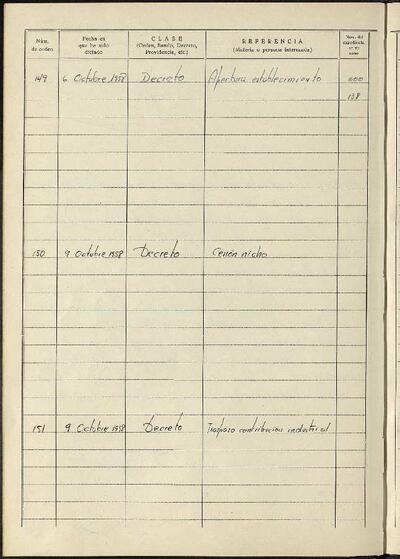 Núm. de orden
Fecha en que ha sido dictado
CLASE
(Orden, Bando, Decreto, Providencia, etc.)
REFERENCIA
(Materia o persona interesada)
Núm. del expediente
149 6 Octubre 1958 Decreto Apertura establecimiento 600
158
150 9 Octubre 1958 Decreto Cesión nicho
151 9 Octubre 1958 Decreto Traspaso contribucion industrial